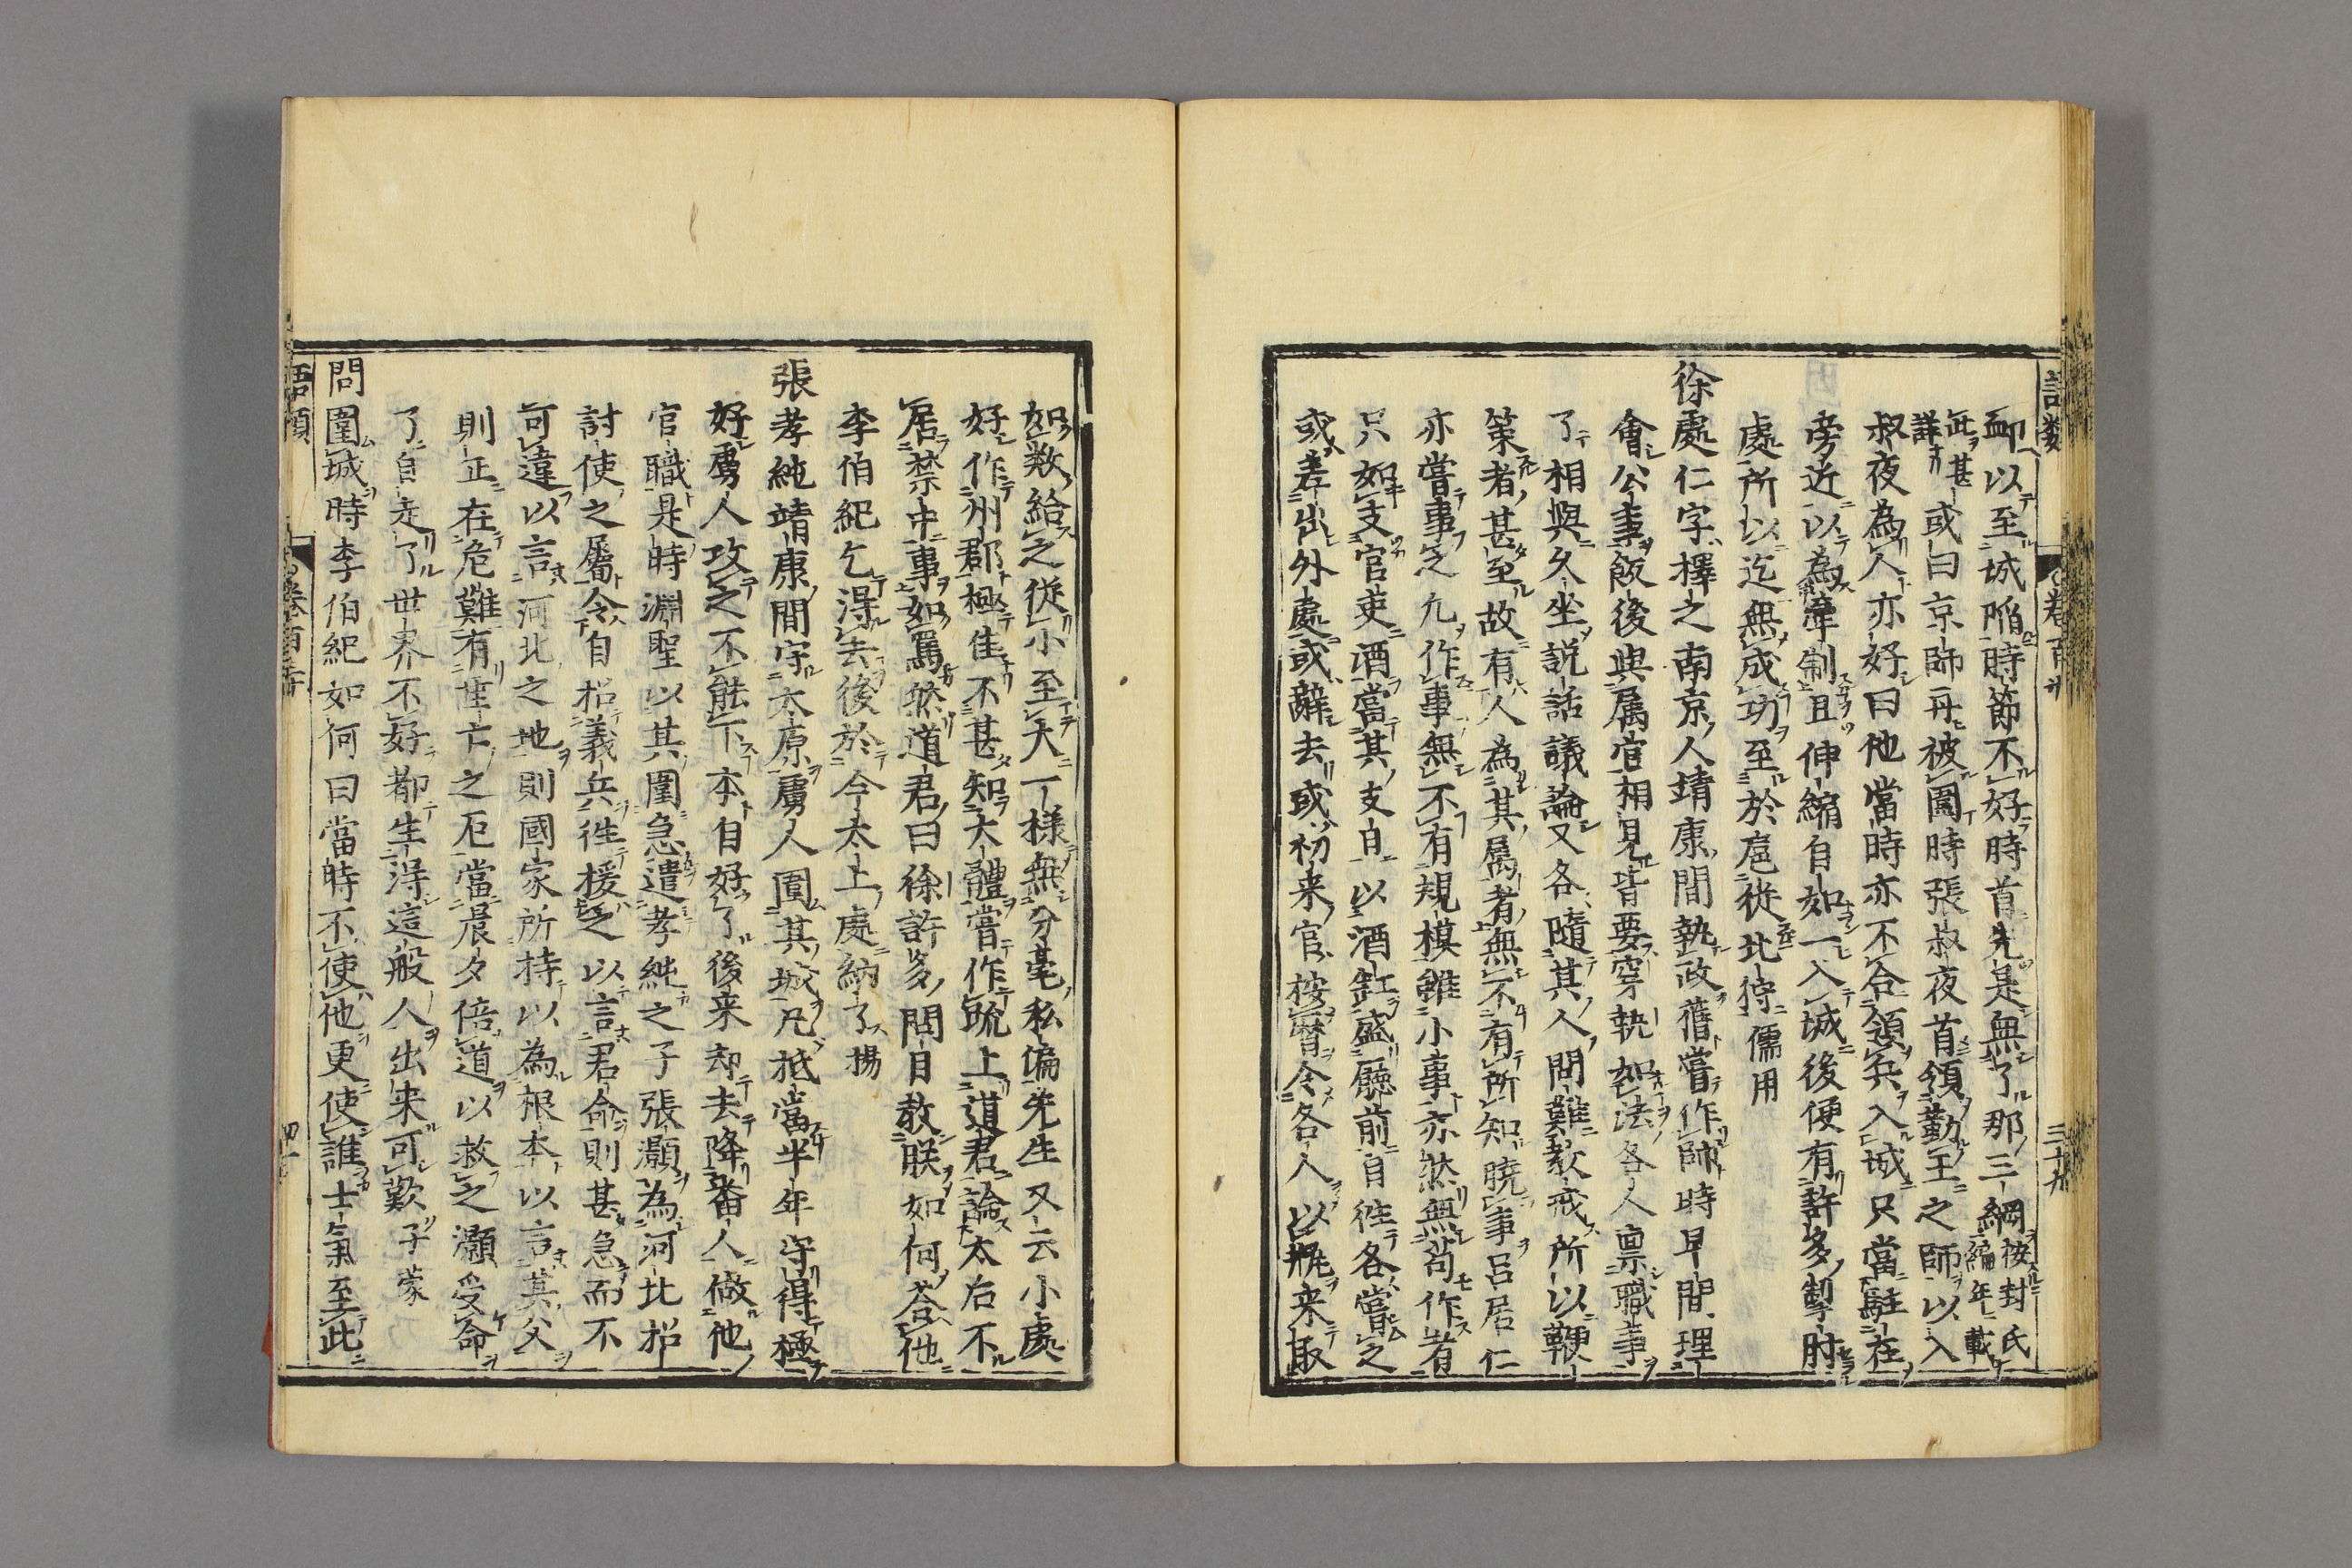 語類
卷百卅
三十九
卹以至城陷時節不好時首先是無了那三綱按封氏編年載
此甚詳或曰京師再被圍時張叔夜首領勤王之師以入
叔夜為人亦好曰他當時亦不合領兵入城只當駐在
旁近以為牽制且伸縮自如一入城後便有許多掣肘
處所以迄無成功至於扈從北狩儒用
徐處仁字擇之南京人靖康間執政舊嘗作帥時早間理
會公事飯後與屬官相見皆要穿執如法各人禀職事
了相與久坐說話議論又各隨其人問難教戒所以鞭
策者甚至故有人為其屬者無不有所知曉事呂居仁
亦嘗事之凡作事無不有規模雖小事亦然無苟作者
只如支官吏酒當其支自以酒缸盛廳前自往各嘗之
或差出外處或辭去或初来官按曆令各人以瓶来取
如數給之從小至大一樣無分毫私偏先生又云小處
好作州郡極佳不甚知大體嘗作疏上道君論太后不
居禁中事如罵然道君曰徐許多問目教朕如何荅他
李伯紀乞得去後於今太上處納了揚
張孝純靖康間守太原虜人圍其城凡抵當半年守得極
好虜人攻之不能下本自好了後来却去降番人做他
官職是時淵聖以其圍急遣孝純之子張灝為河北招
討使之屬令自招義兵往援之以言君命則甚急而不
可違以言河北之地則國家所持以為根本以言其父
則正在危難有生亡之厄當晨夕倍道以救之灝受命
了自走了世界不好都生得這般人出来可歎子蒙
問圍城時李伯紀如何曰當時不使他更使誰士氣至此
語類
卷百三十
四十